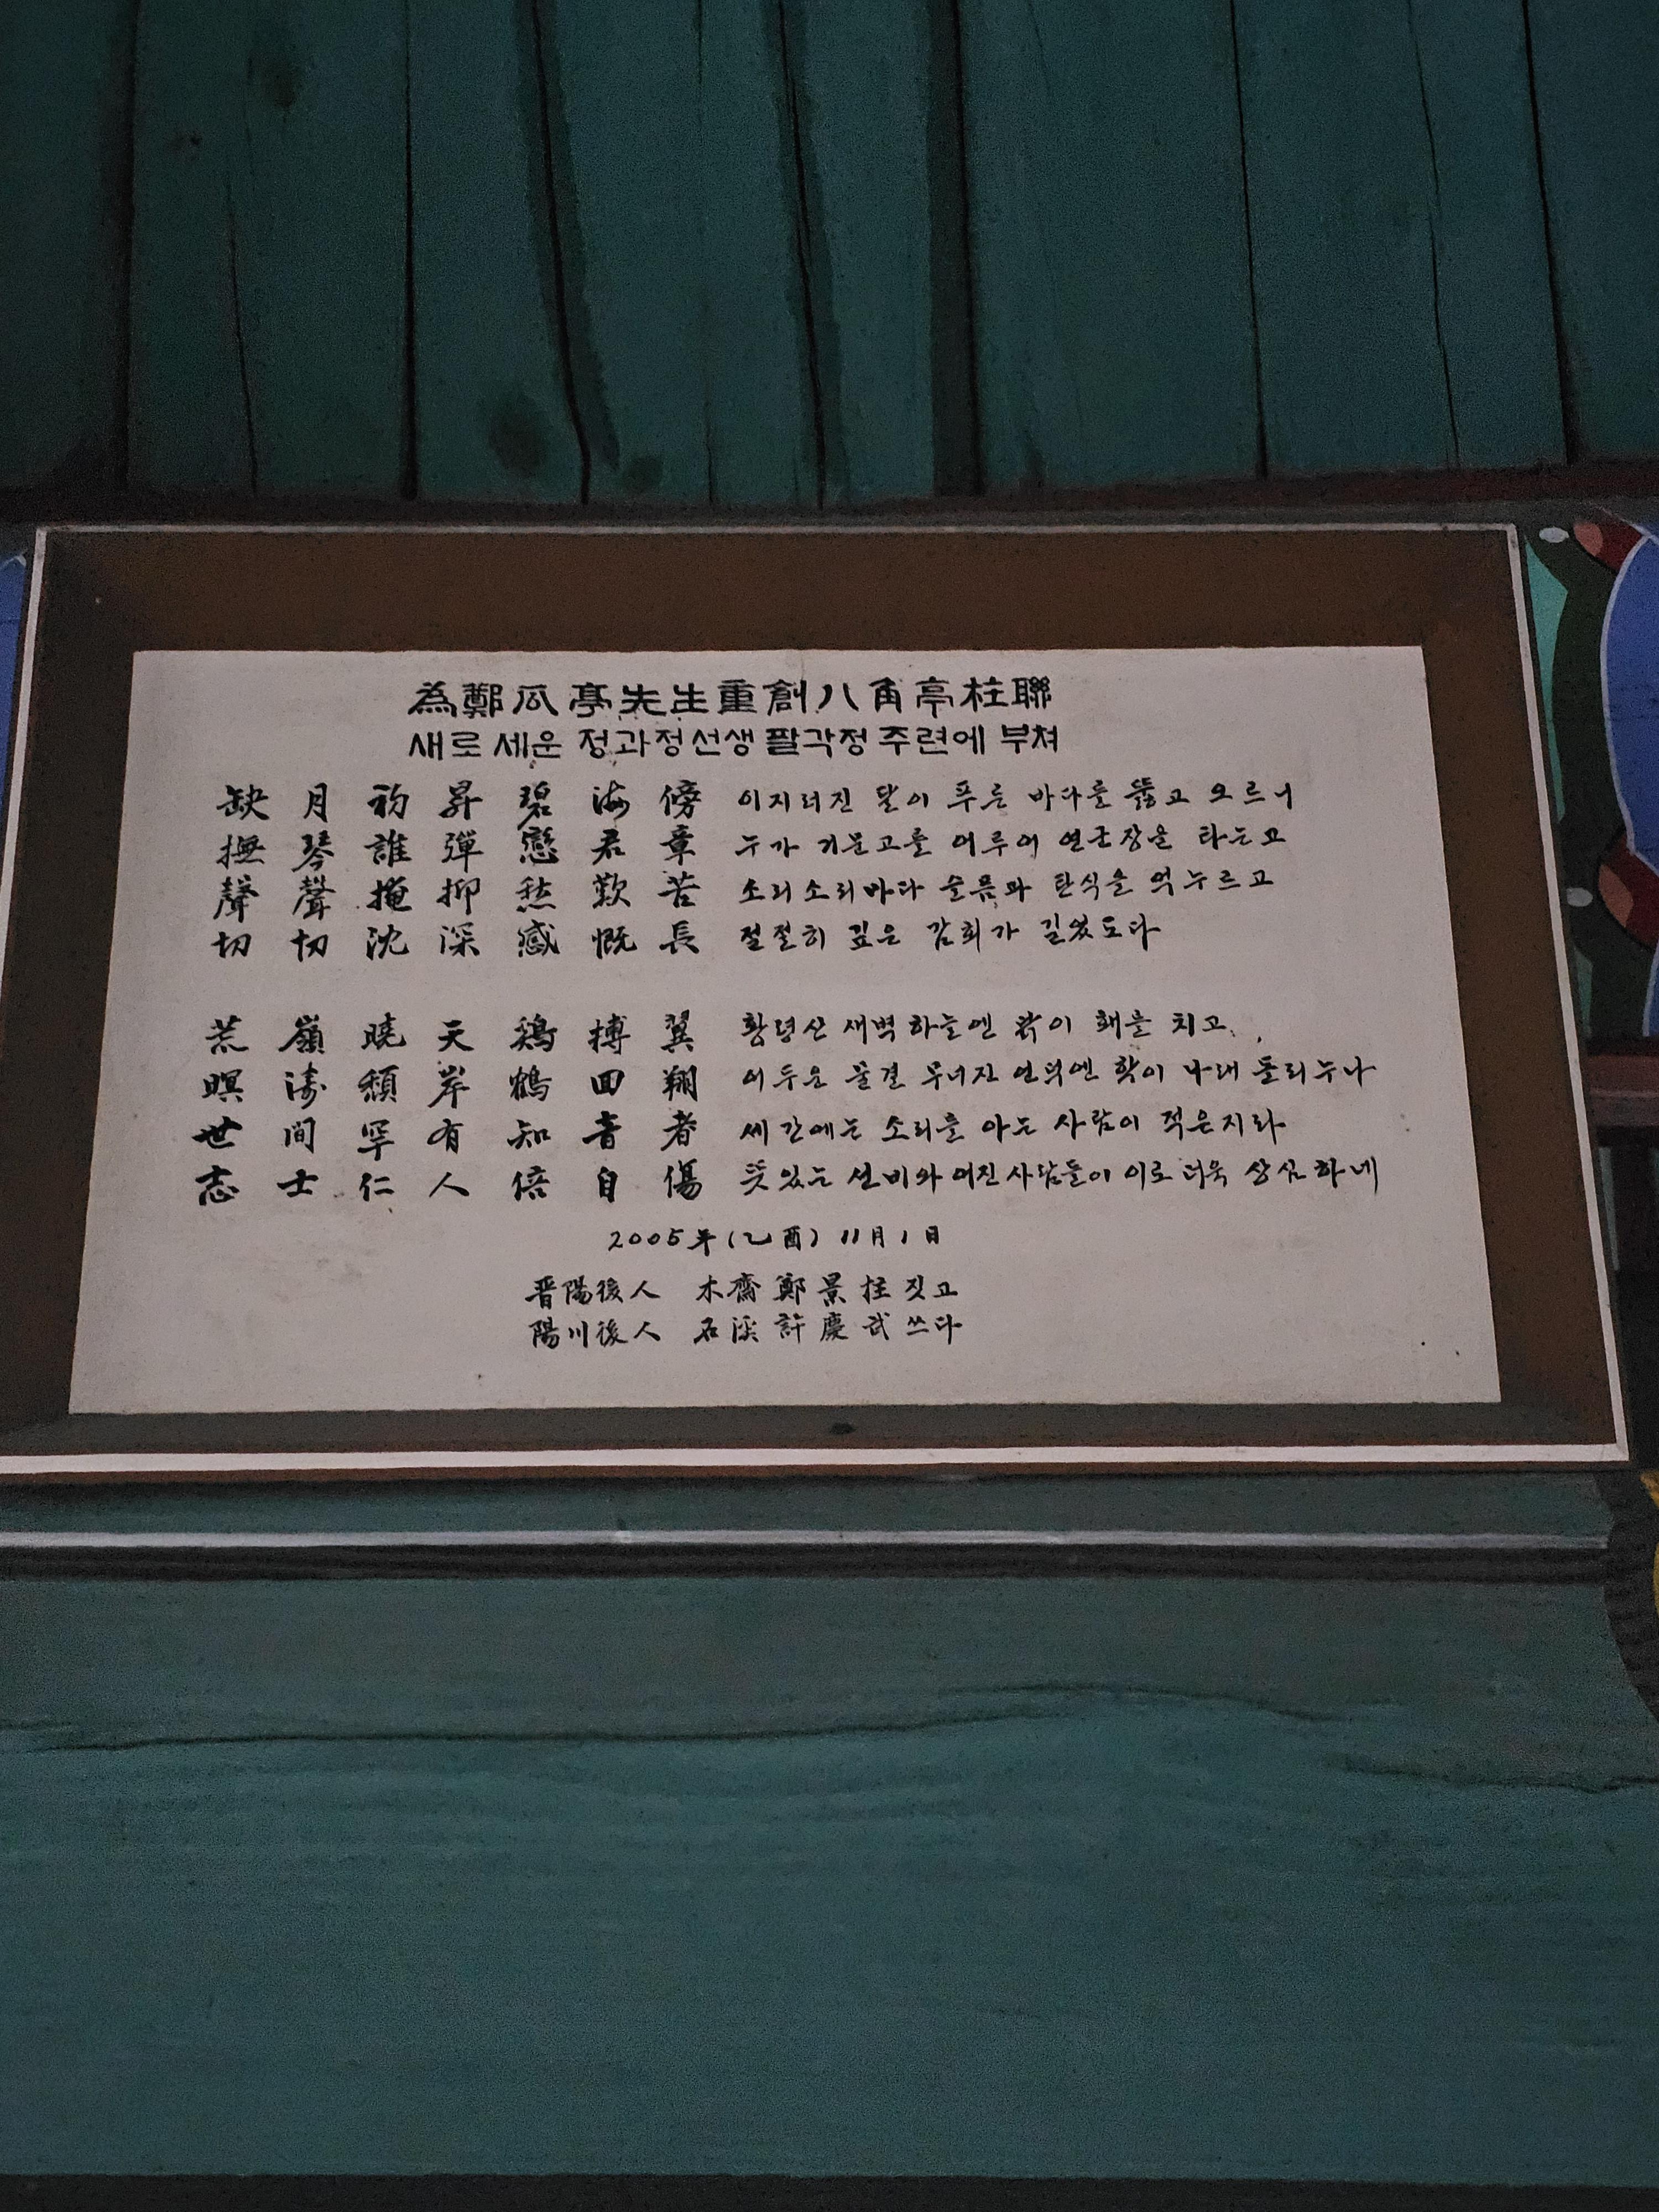 為鄭瓜亭先生重創八角亭柱聯
새로 세운 정과정선생 팔각정 주련에 부쳐
缺月初昇碧海傍 이지러진 달이 푸른 바다를 뚫고 오르니
撫琴誰彈戀君章 누가 거문고를 어루어 연군장을 타는고
聲聲掩抑愁歎苦 소리소리마다 슬픔과 탄식을 억누르고
切切沈深感慨長 절절히 깊은 감회가 길었도다
荒嶺曉天鷄搏翼 황령산 새벽하늘엔 닭이 홰를 치고
暝濤頹岸鶴回翔 어두운 물결 무너진 언덕엔 학이 나래 돌리누나
世間罕有知音者 세간에는 소리를 아는 사람이 적은지라
志士仁人倍自傷 뜻있는 선비와 어진사람들이 이로 더욱 상심하네
2005年(乙酉) 11月1日
晋陽後人 木齋 鄭景柱 짓고
陽川後人 石溪 許慶武 쓰다